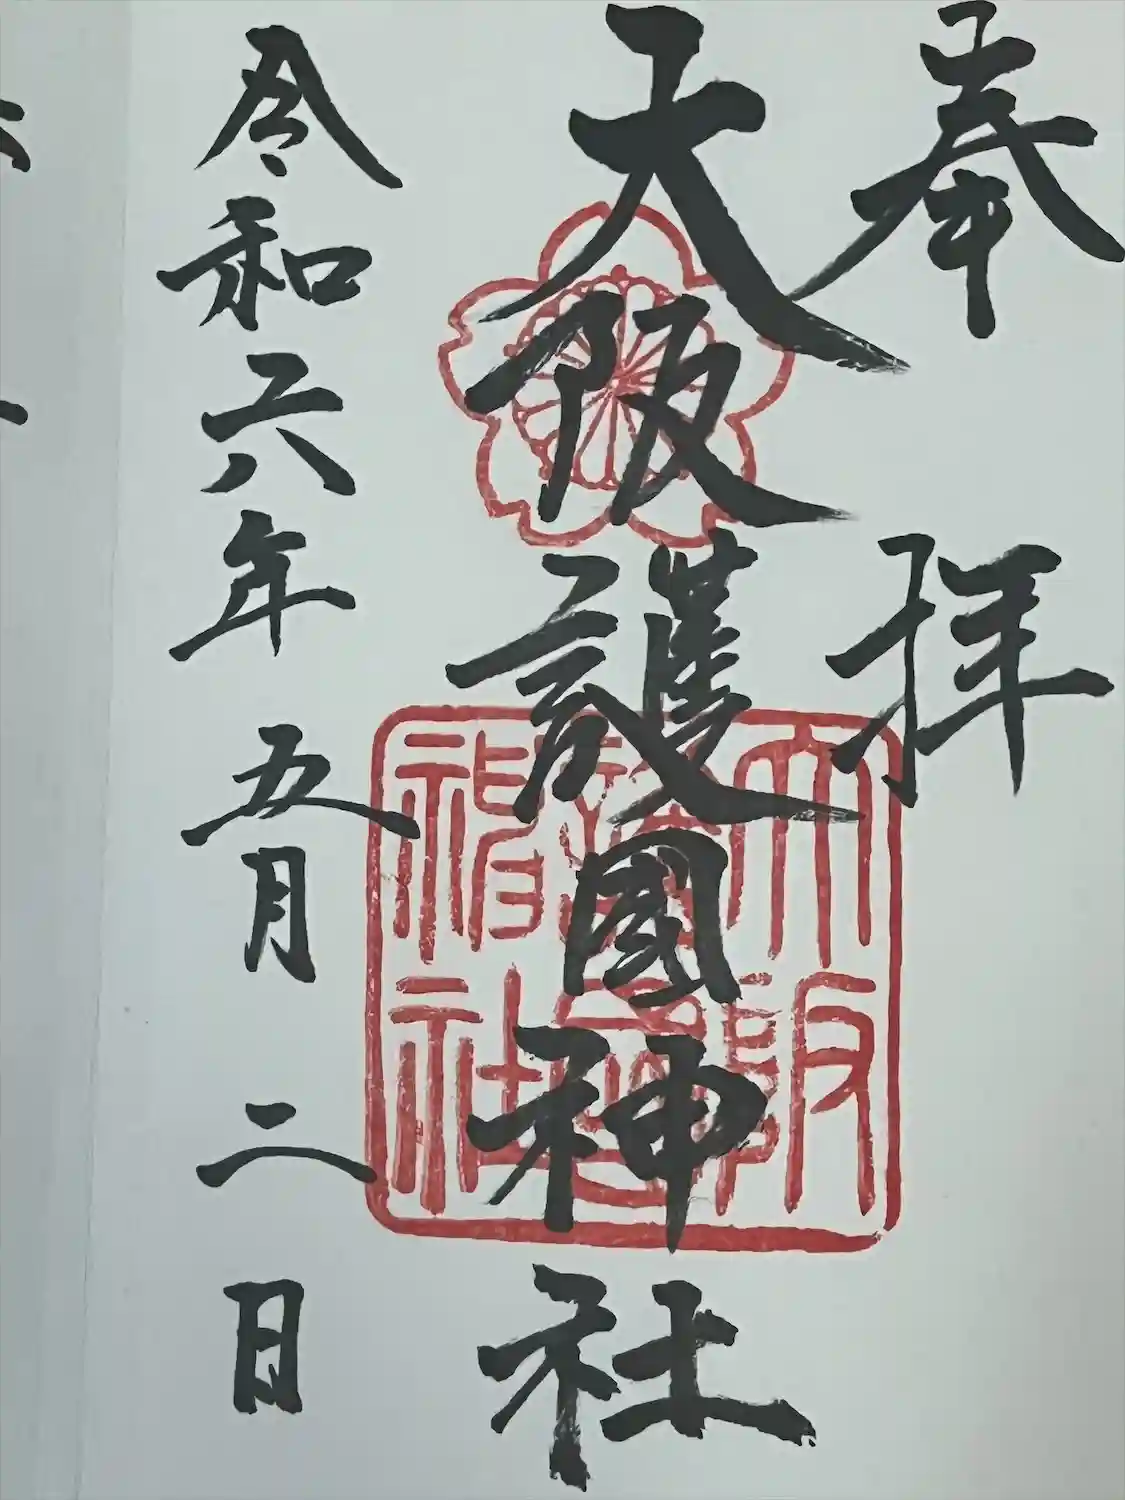 奉拝
大阪護國神社
令和六年五月二日
大阪護國神社